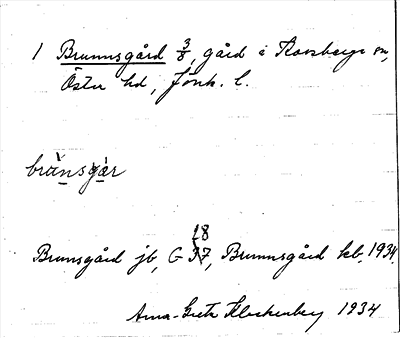 1 Brunnsgård 3/8, gård i Korsberga sn,
Östra hd, Jönk. l.
brùnsgàr
18
Brunsgård jb, G 37, Brunnsgård kb, 1934.
Anna-Greta Klockenberg 1934